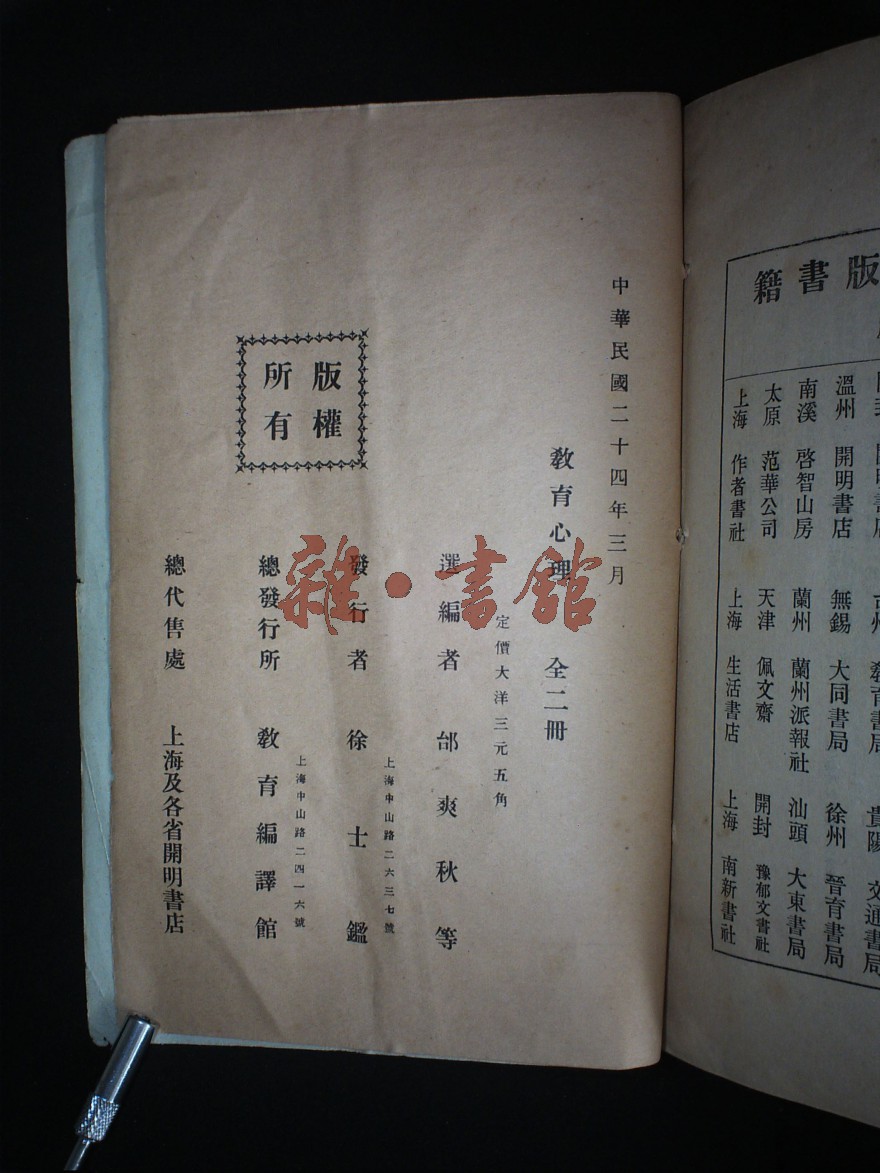 版書籍
溫州 開明書店 無錫 大同書局 徐州 晉育書局
南溪 啓智山房 蘭州 蘭州派報社 汕頭 大東書局
太原 范華公司 天津 佩文齋 開封 豫郁文書社
上海 作者書社 上海 生活書店 上海 南新書社
中華民國二十四年三月
教育心理 全二冊
定價大洋三元五角
選編者 邰爽秋等
上海中山路二六三七號
發行者 徐士鑑
上海中山路二四一六號
總發行所 教育編譯館
總代售處 上海及各省開明書店
版權
所有
雜·書館